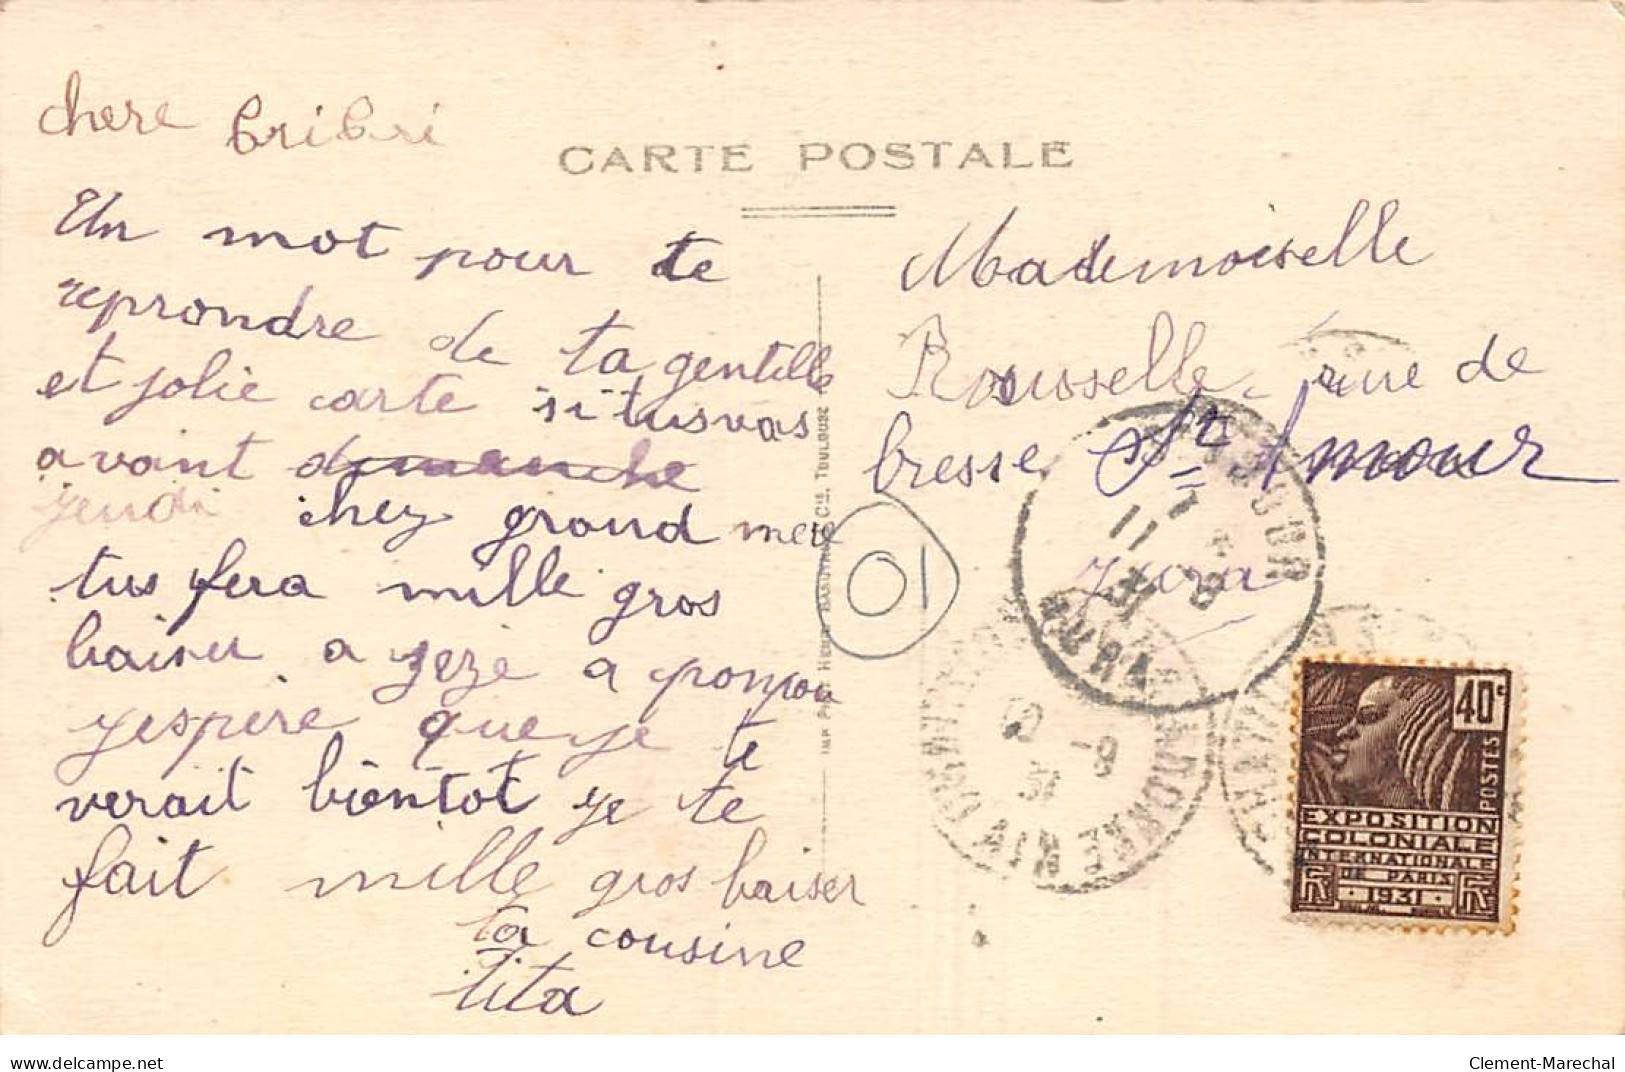 chere bribri
CARTE POSTALE
Un mot pour te
reprondre de ta gentille
et jolie carte si tus vas
avant dimanche
jeudi chez grand mere
tus fera mille gros
baiser a zezé a ponpon
jespère que je te
verait bientot je te
fait mille gros baiser
ta cousine
tita
Mademoiselle
Rousselle rue de
bresse St Amour
Jura
01
40c
POSTES
EXPOSITION
COLONIALE
INTERNATIONALE
DE PARIS
RF 1931 RF
ST AMOUR
JURA
11
31
-9
31
AIN
Delcampe.net
Clement-Marechal